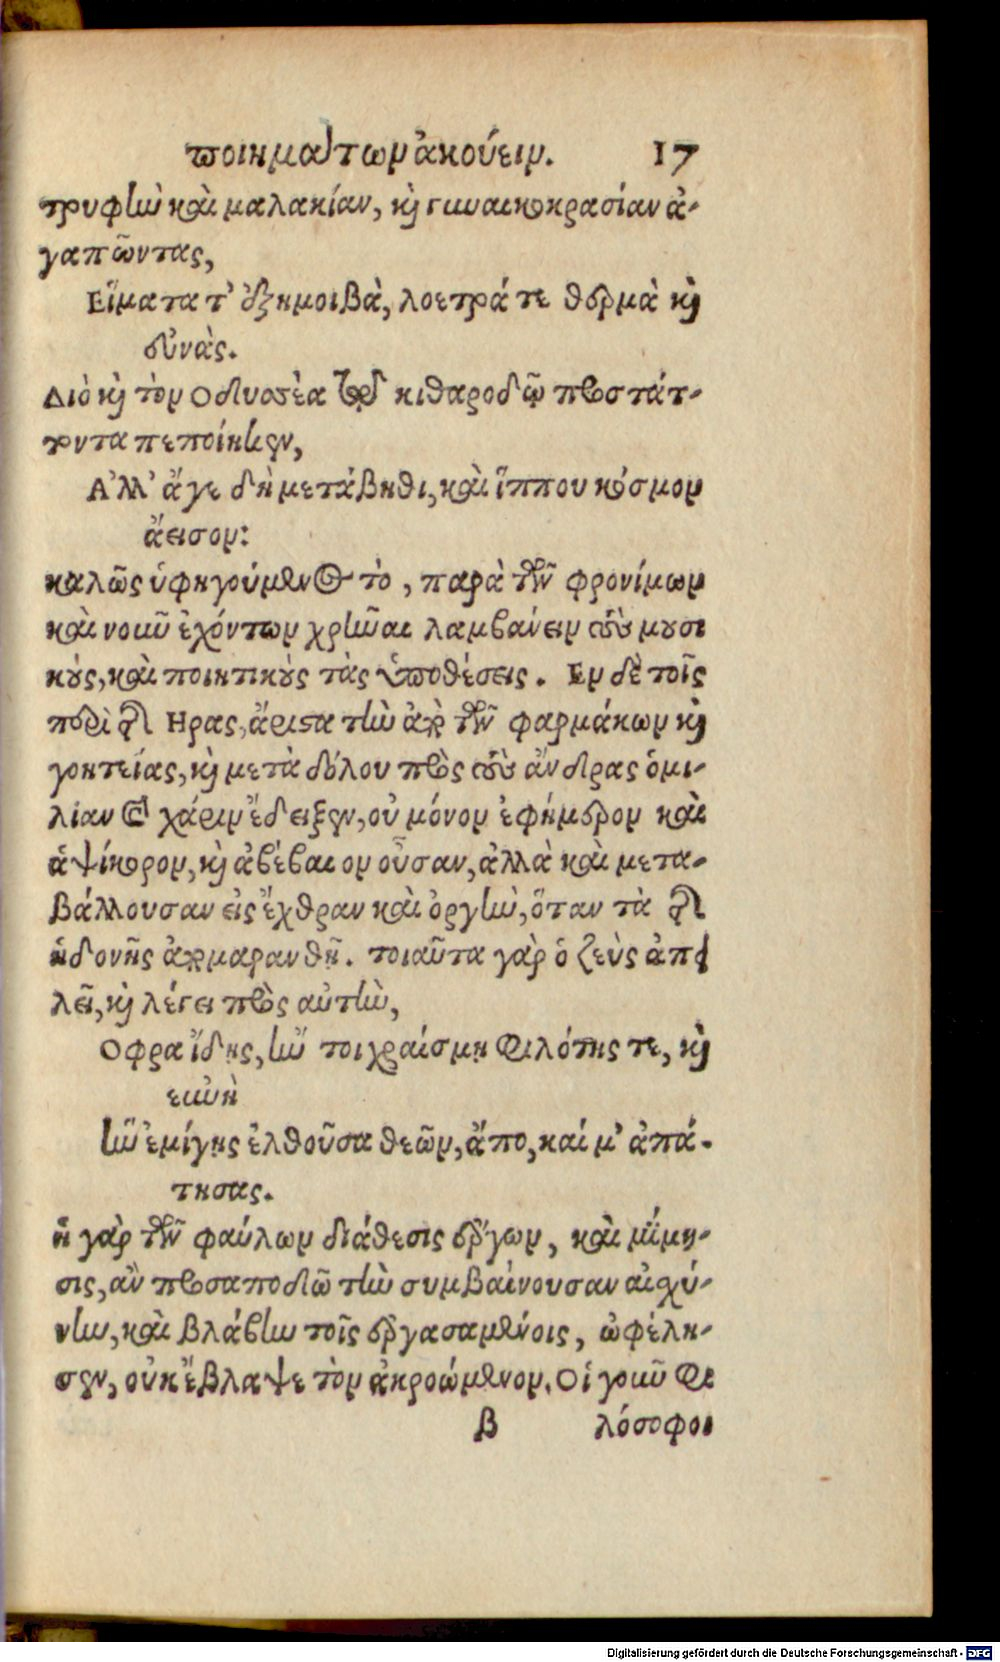 ποιημάτων ἀκούειν. 17
τρυφὴν καὶ μαλακίαν, καὶ γυναικοκρασίαν ἀ-
γαπῶντας,
Εἵματα τ' ἐξημοιβὰ, λοετρά τε θερμὰ καὶ
εὐνάς.
Διὸ καὶ τὸν Οδυσσέα τῷ κιθαρωδῷ προστάτ-
τοντα πεποίηκεν,
Ἀλλ' ἄγε δὴ μετάβηθι, καὶ ἵππου κόσμον
ἄεισον:
καλῶς ὑφηγούμενος τὸ, παρὰ τῶν φρονίμων
καὶ νοῦν ἐχόντων χρῆναι λαμβάνειν τοὺς μουσι
κοὺς, καὶ ποιητικοὺς τὰς ὑποθέσεις. Εν δὲ τοῖς
περὶ τῆς Ηρας, ἄριστα τὴν ἀπὸ τῶν φαρμάκων καὶ
γοητείας, καὶ μετὰ δόλου πρὸς τοὺς ἄνδρας ὁμι-
λίαν καὶ χάριν ἔδειξεν, οὐ μόνον ἐφήμερον καὶ
ἁψίκορον, καὶ ἀβέβαιον οὖσαν, ἀλλὰ καὶ μετα-
βάλλουσαν εἰς ἔχθραν καὶ ὀργὴν, ὅταν τὰ τῆς
ἡδονῆς ἀπομαρανθῇ. τοιαῦτα γὰρ ὁ ζεὺς ἀπει
λεῖ, καὶ λέγει πρὸς αὐτὴν,
Οφρα ἴδῃς, ἢν τοι χραίσμῃ φιλότης τε, καὶ
εὐνὴ
ἣν ἐμίγης ἐλθοῦσα θεῶν, ἄπο, καί μ' ἀπά-
τησας.
ἡ γὰρ τῶν φαύλων διάθεσις ἔργων, καὶ μίμη-
σις, ἂν προσαποδῷ τὴν συμβαίνουσαν αἰσχύ-
νην, καὶ βλάβην τοῖς ἐργασαμένοις, ὠφέλη-
σεν, οὐκ ἔβλαψε τὸν ἀκροώμενον. Οἱ γοῦν φι
B λόσοφοι
Digitalisierung gefördert durch die Deutsche Forschungsgemeinschaft - DFG